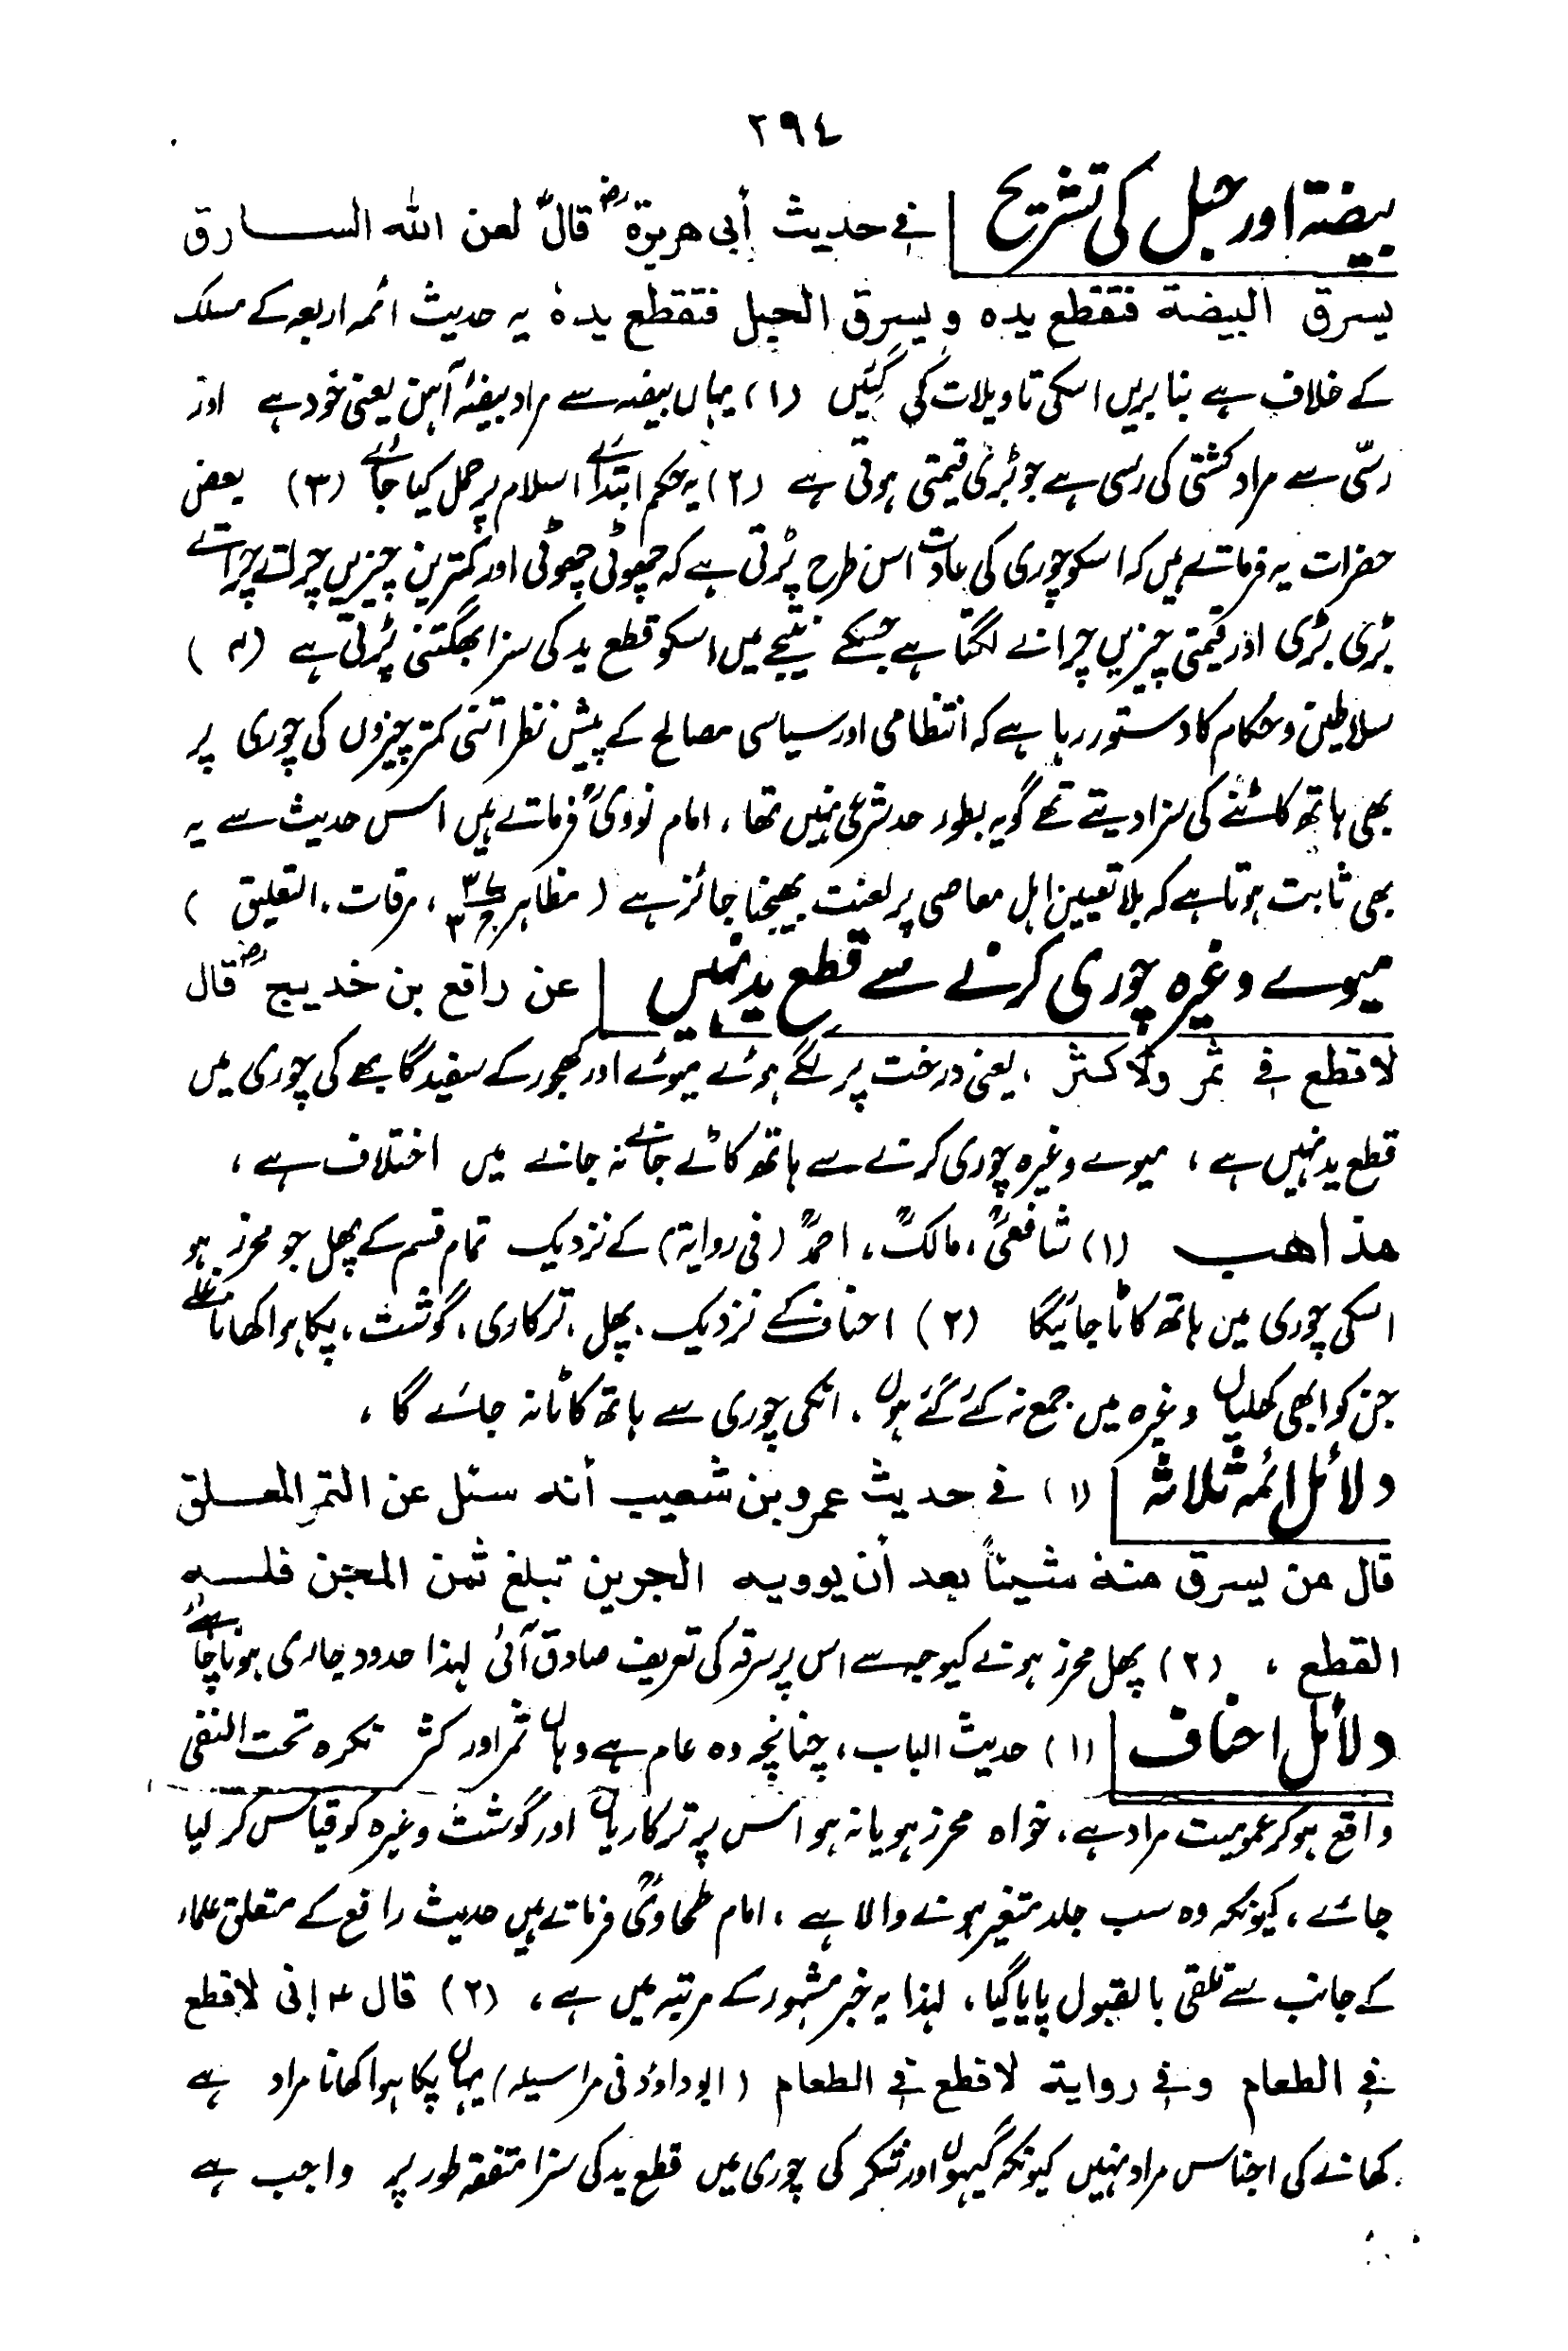 ٢٩٤
بیضۃ اور حبل کی تشریح | فی حدیث أبی ھریرۃ رضـ قالؐ لعن اللہ الســارق
یسرق البیضۃ فتقطع یدہ و یسرق الحبل فتقطع یدہ یہ حدیث ائمہ اربعہ کے مسلک
کے خلاف ہے بنا بریں اسکی تاویلات کی گئیں (۱) یہاں بیضہ سے مراد بیضۂ آہن یعنی خود ہے اور
رسّی سے مراد کشتی کی رسی ہے جو بڑی قیمتی ہوتی ہے (۲) یہ حکم ابتدائے اسلام پر حمل کیا جائے (۳) بعض
حضرات یہ فرماتے ہیں کہ اسکو چوری کی عادت اس طرح پڑتی ہے کہ چھوٹی چھوٹی اور کمترین چیزیں چراتے چراتے
بڑی بڑی اور قیمتی چیزیں چرانے لگتا ہے جسکے نتیجے میں اسکو قطع ید کی سزا بھگتنی پڑتی ہے (۴)
سلاطین و حکام کا دستور رہا ہے کہ انتظامی اور سیاسی مصالح کے پیش نظر اتنی کمتر چیزوں کی چوری پر
بھی ہاتھ کاٹنے کی سزا دیتے تھے گویہ بطور حد شرعی نہیں تھا، امام نوویؒ فرماتے ہیں اس حدیث سے یہ
بھی ثابت ہوتا ہے کہ بلا تعیین اہل معاصی پر لعنت بھیجنا جائز ہے (مظاہر، مرقات، التعلیق)
میوے وغیرہ چوری کرنے سے قطع ید نہیں | عن رافع بن خدیج رضـ قال
لا قطع فی ثمر ولا کثر، یعنی درخت پر لگے ہوئے میوے اور کھجور کے سفید گابھے کی چوری میں
قطع ید نہیں ہے، میوے وغیرہ چوری کرنے سے ہاتھ کاٹے جانے نہ جانے میں اختلاف ہے،
مذاھب (۱) شافعیؒ، مالکؒ، احمدؒ (فی روایۃ) کے نزدیک تمام قسم کے پھل جو محرز ہو
اسکی چوری میں ہاتھ کاٹا جائیگا (۲) احناف کے نزدیک، پھل، ترکاری، گوشت، پکا ہوا کھانا غلے
جن کو ابھی کھلیاں وغیرہ میں جمع نہ کئے گئے ہوں، انکی چوری سے ہاتھ کاٹا نہ جائے گا،
دلائل ائمہ ثلاثہ | (۱) فی حدیث عمرو بن شعیب أنہ سئل عن التمر المعلق
قال من یسرق منہ شیئاً بعد أن یوویہ الجرین تبلغ ثمن المجن فلسہ
القطع، (۲) پھل محرز ہونے کیوجہ سے اس پر سرقہ کی تعریف صادق آئی لہذا حدود جاری ہونا چاہئے
دلائل احناف | (۱) حدیث الباب، چنانچہ وہ عام ہے وہاں ثمر اور کثر نکرہ تحت النفی
واقع ہوکر عمومیت مراد ہے، خواہ محرز ہو یا نہ ہو اس پر ترکاریاں اور گوشت وغیرہ کو قیاس کر لیا
جائے، کیونکہ وہ سب جلد متغیر ہونے والا ہے، امام طحاویؒ فرماتے ہیں حدیث رافع کے متعلق علماء
کے جانب سے تلقی بالقبول پایا گیا، لہذا یہ خبر مشہور کے مرتبہ میں ہے، (۲) قال ؑ إنی لا قطع
فی الطعام وفی روایۃ لا قطع فی الطعام (ابوداؤد فی مراسیلہ) یہاں پکا ہوا کھانا مراد ہے
کھانے کی اجناس مراد نہیں کیونکہ گیہوں اور شکر کی چوری میں قطع ید کی سزا متفقہ طور پر واجب ہے